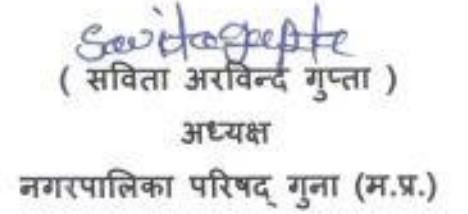 Savitagupta
( सविता अरविन्द गुप्ता )
अध्यक्ष
नगरपालिका परिषद् गुना (म.प्र.)